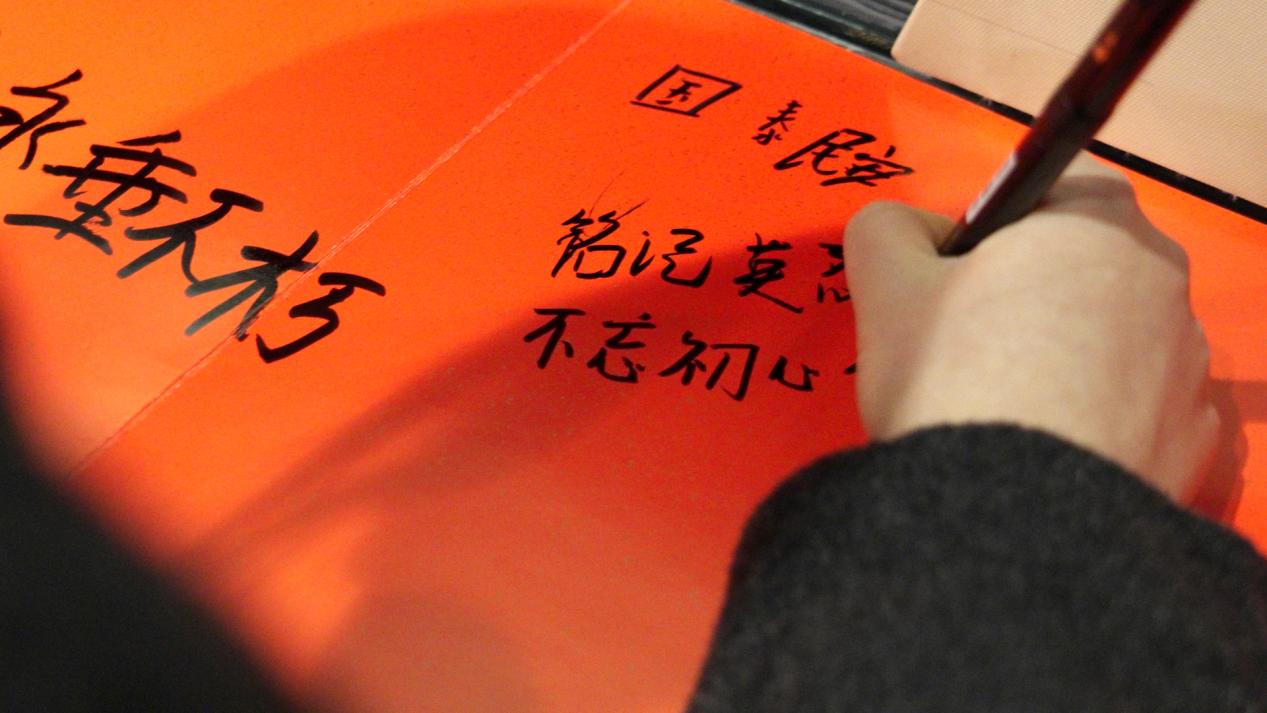 永垂不朽
国泰民安
铭记英
不忘初心